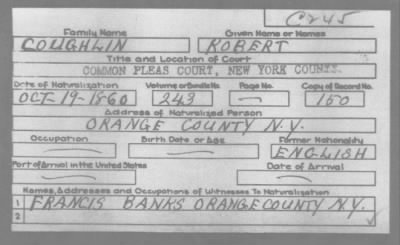 C245
Family Name Given Name or Names
COUGHLIN ROBERT
Title and Location of Court
COMMON PLEAS COURT, NEW YORK COUNTY
Date of Naturalization Volume or Bundle No. Page No. Copy of Record No.
OCT-19-1860 243 — 150
Address of Naturalized Person
ORANGE COUNTY N.Y.
Occupation Birth Date or Age Former Nationality
— — ENGLISH
Port of Arrival in the United States Date of Arrival
— —
Names, Addresses and Occupations of Witnesses To Naturalization
1 FRANCIS BANKS ORANGE COUNTY N.Y.
2